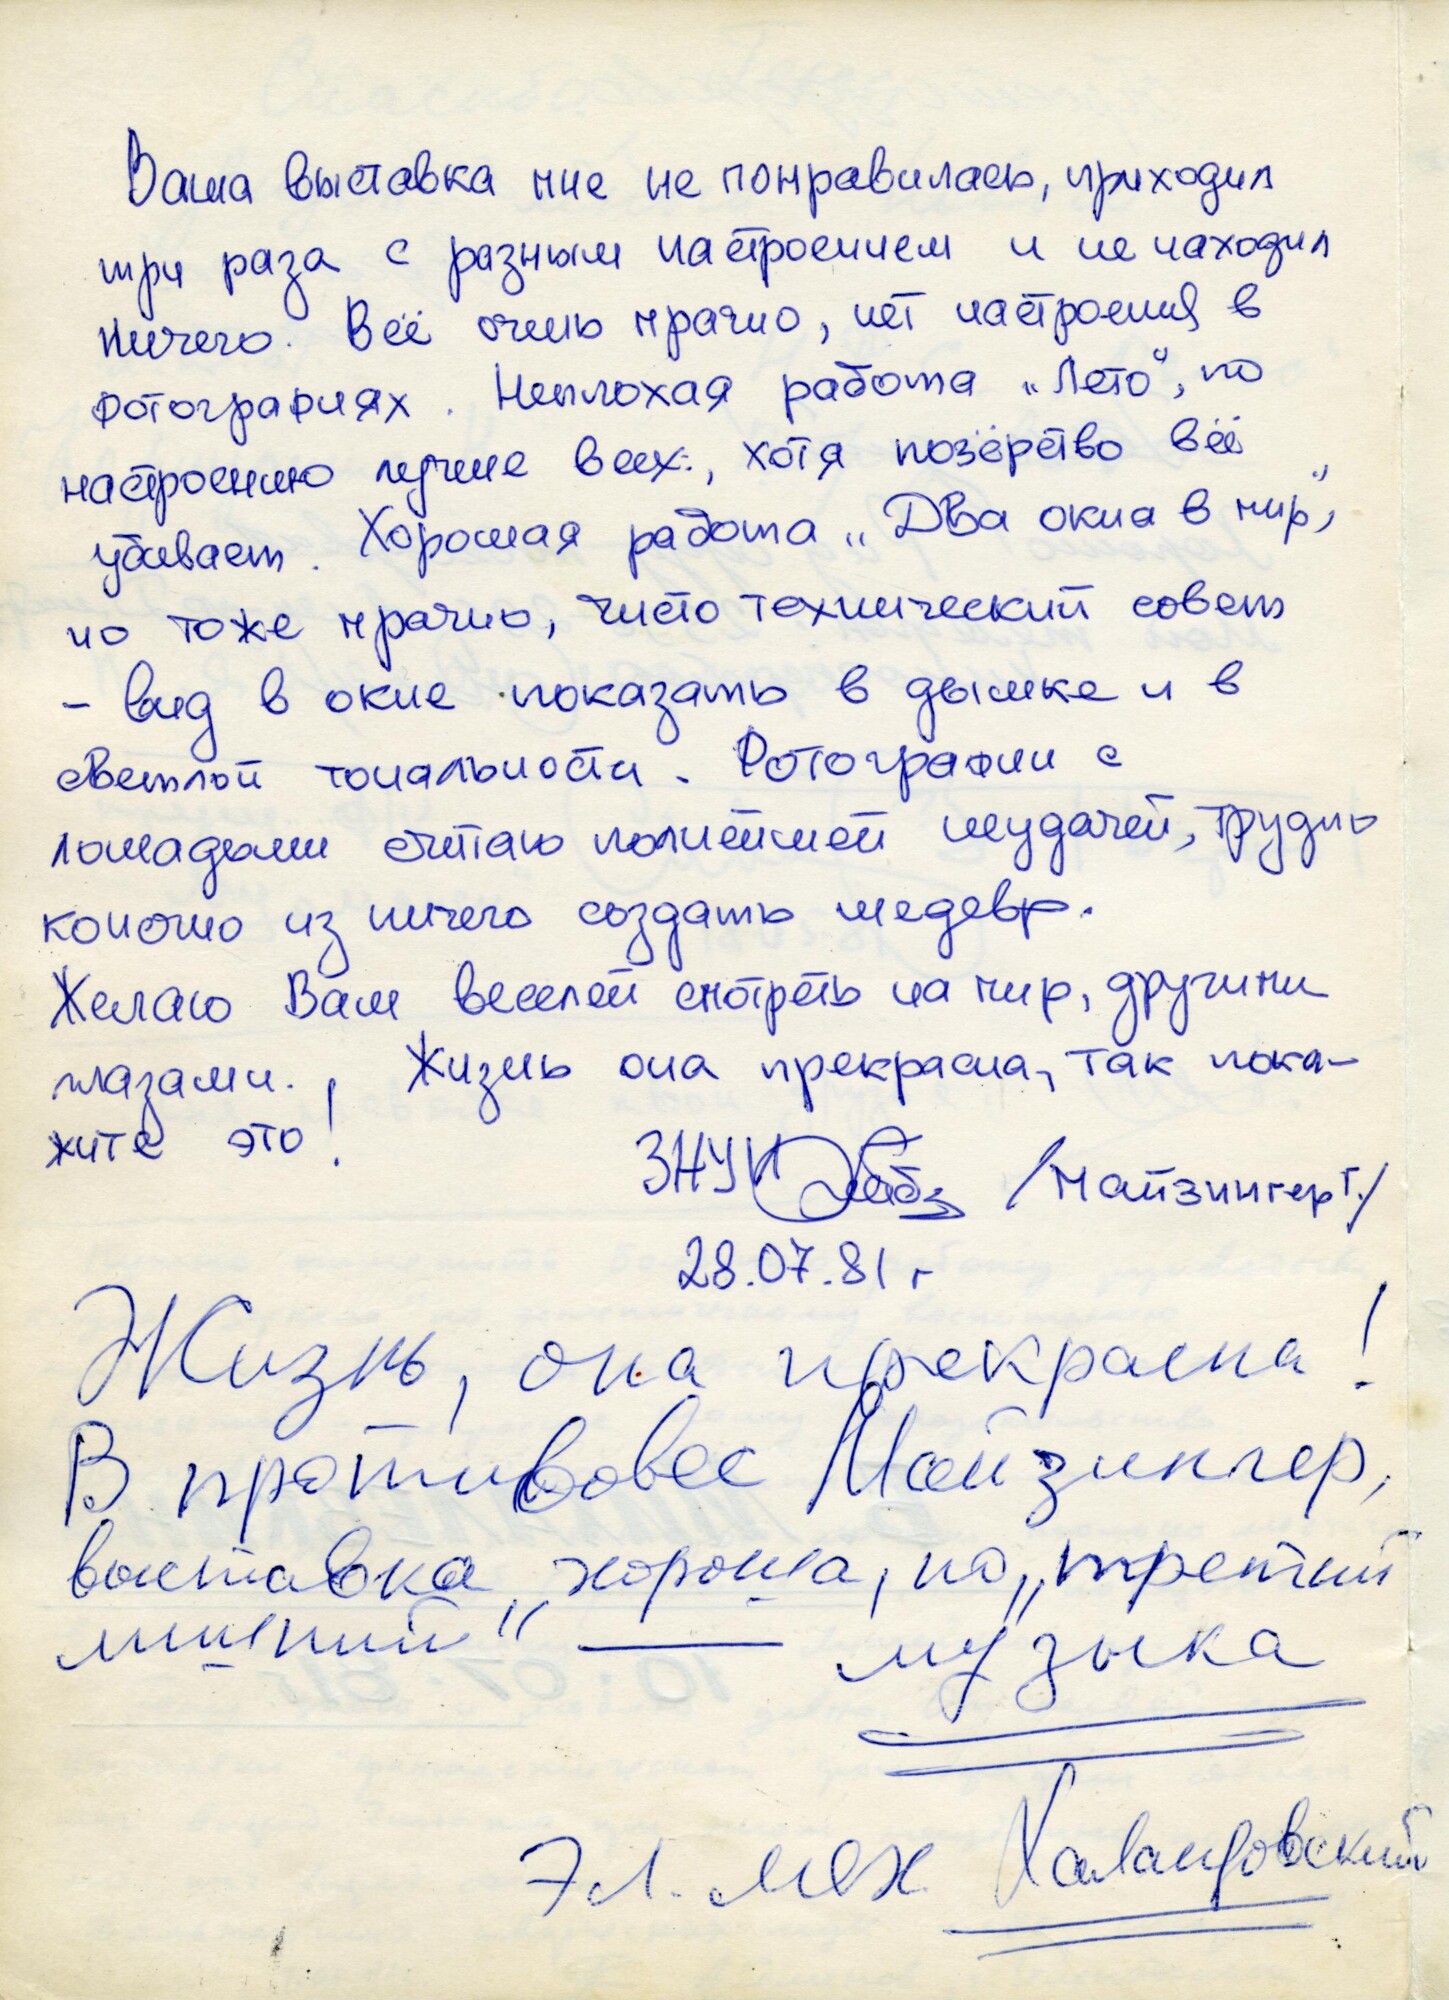 Ваша выставка мне не понравилась, приходил
три раза с разным настроением и не находил
ничего. Всё очень мрачно, нет настроения в
фотографиях. Неплохая работа „Лето", по
настроению лучше всех, хотя позёрство всё
убивает. Хорошая работа „Два окна в мир",
но тоже мрачно, чисто технический совет
- вид в окне показать в дымке и в
светлой тональности. Фотографии с
лошадьми считаю полнейшей неудачей, трудно
коночно из ничего создать шедевр.
Желаю Вам веселей смотреть на мир, другими
глазами. Жизнь она прекрасна, так пока-
жите это!
ЗНУИ /Майзингер Г./
28.07.81 г
Жизнь, она прекрасна!
В противовес Майзингер,
выставка хороша, но „третий
лишний" — музыка
Эл. мех Халандовский